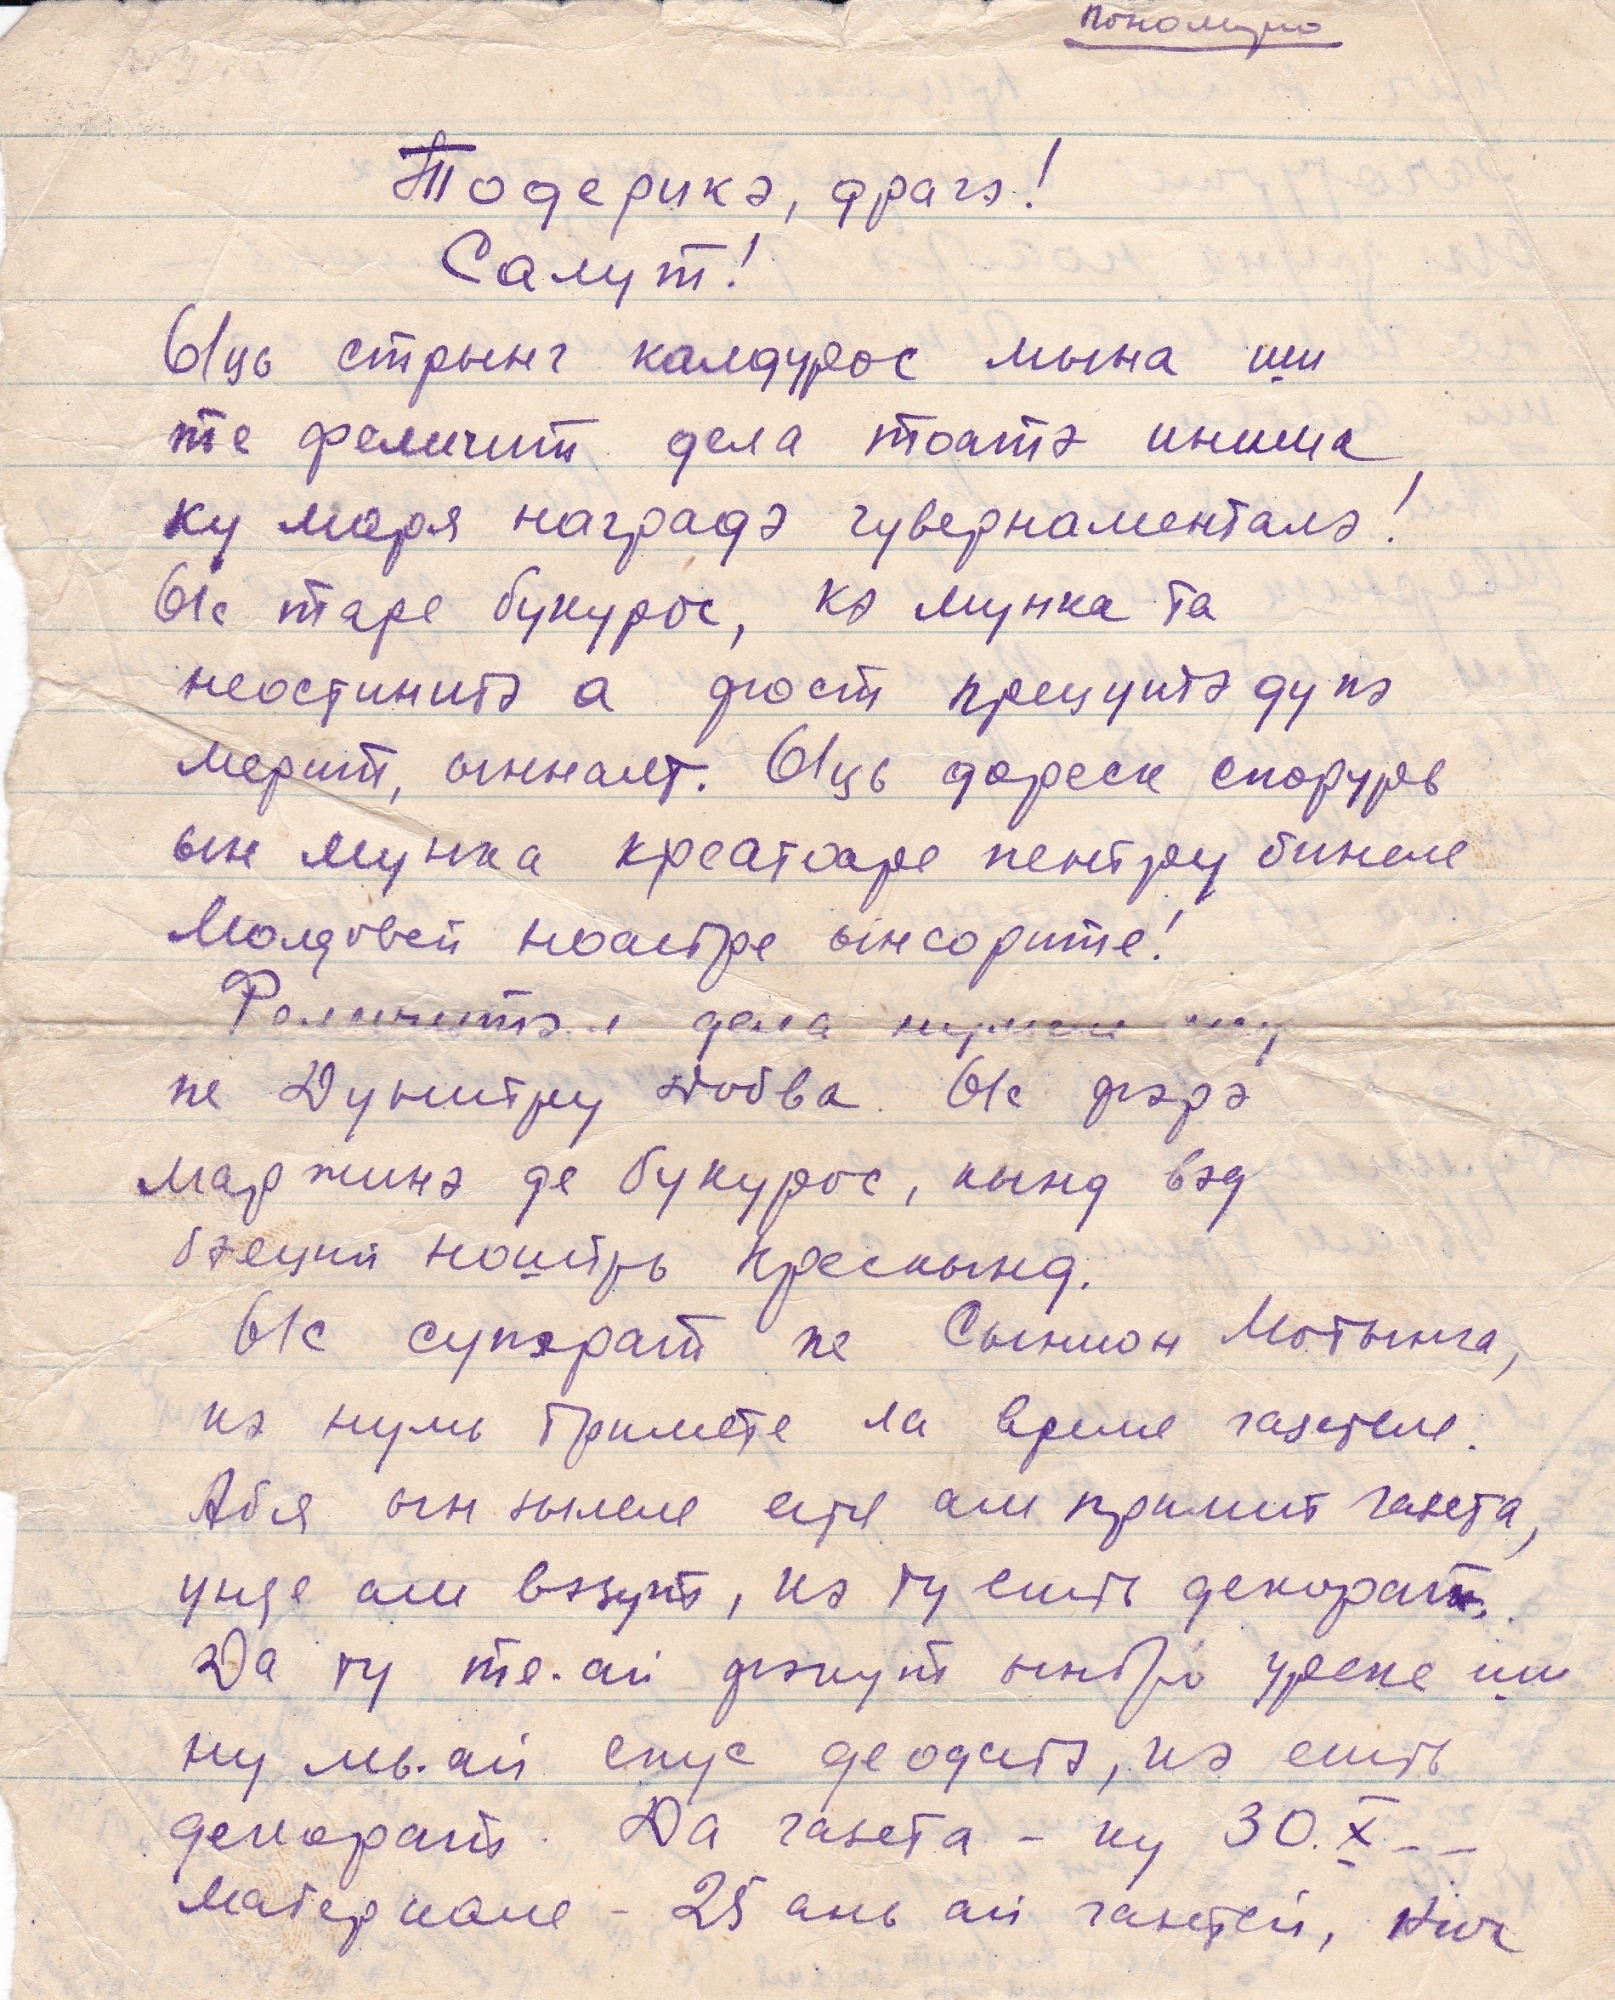 Тодерикэ, драгэ!
Салут!
Ыць стрынг калдурос мына ши
те феличит дела тоатэ инима
ку маря наградэ гувернаменталэ!
Ыс таре букурос, кэ мунка та
неостинитэ а фост прецуитэ дупэ
мерит, ынналт. Ыць дореск спорурь
ын мунка креатоаре пентру бинеле
Молдовей ноастре ынсорите!
Феличитэ-л дела нумеле
пе Думитру Довба. Ыс фэрэ
марӂинэ де букурос, кынд вэд
бэеций ноштрь крескынд.
Ыс супэрат пе Сымион Мотынга,
кэ нумь тримете ла време газетеле.
Абя ын зылеле естя ам примит газета,
унде ам вэзут, кэ ту ешть декорат.
Да ту те-ай фэкут ынтрэ уреке ши
ну мь-ай спус деодатэ, кэ ешть
декорат. Да газета - ку 30.X --
Материале - 25 ань ай газетей, нич